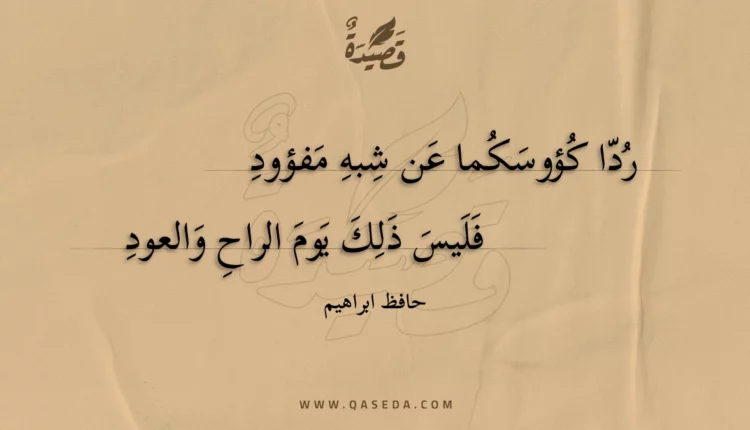 قَصِيدَةٌ
رُدّا كُؤوسَكُما عَن شِبهِ مَفؤودِ
فَلَيسَ ذَلِكَ يَومَ الراحِ وَالعودِ
حافظ ابراهيم
WWW.QASEDA.COM